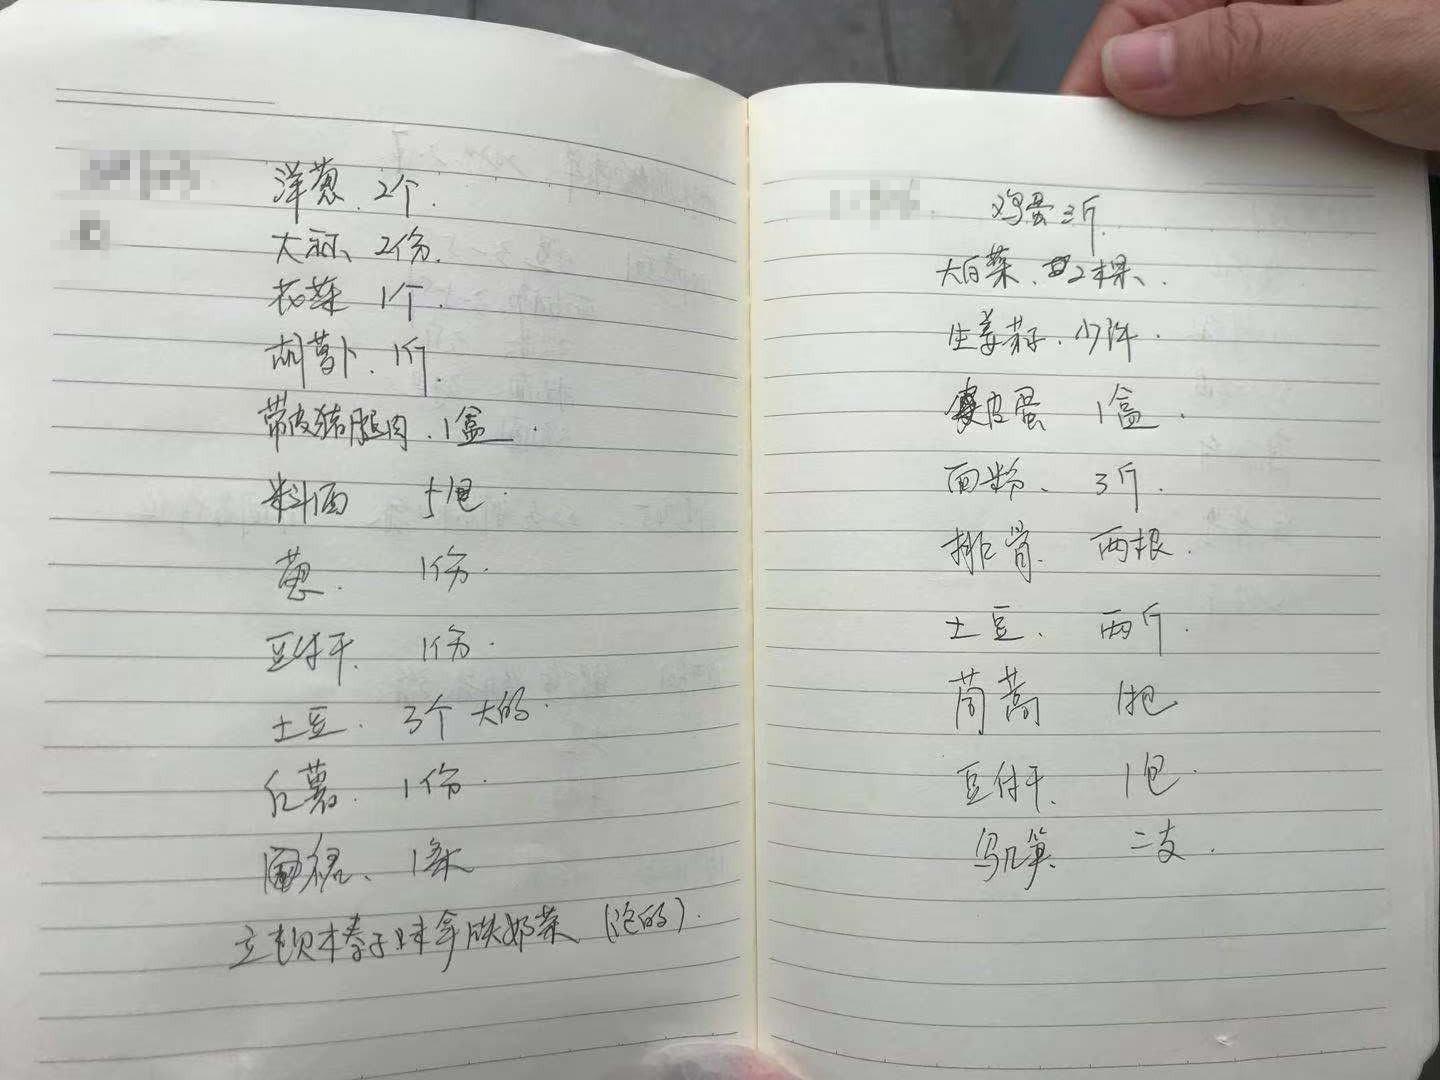 洋葱、2个.
大蒜、2份.
花菜 1个.
胡萝卜、1斤.
带皮猪腿肉、1盒.
料酒 5包.
葱. 1份.
豆付干. 1份.
土豆. 3个大的.
红薯. 1份.
1条
立顿榛子味拿铁奶茶 (泡的).
鸡蛋3斤.
大白菜、2棵、.
生姜、少许.
皮蛋 1盒.
面粉、3斤.
排骨. 两根.
土豆、两斤.
茼蒿 1包
豆付干. 1包.
二支.